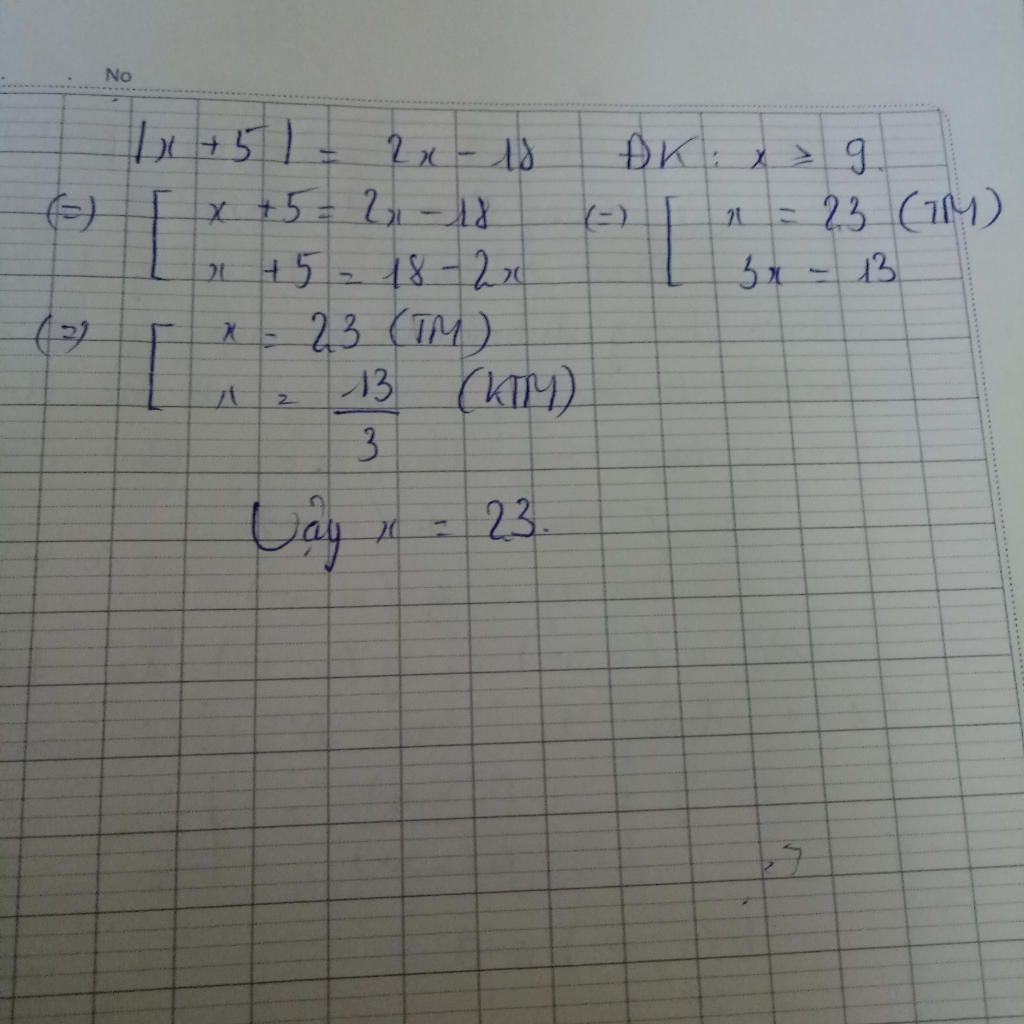 No
|x + 5| = 2x - 18 ĐK: x ≥ 9.
(=) [ x + 5 = 2x - 18 (=) [ x = 23 (TM)
x + 5 = 18 - 2x 3x = 13
(=) [ x = 23 (TM)
x = 13/3 (KTM)
Vậy x = 23.